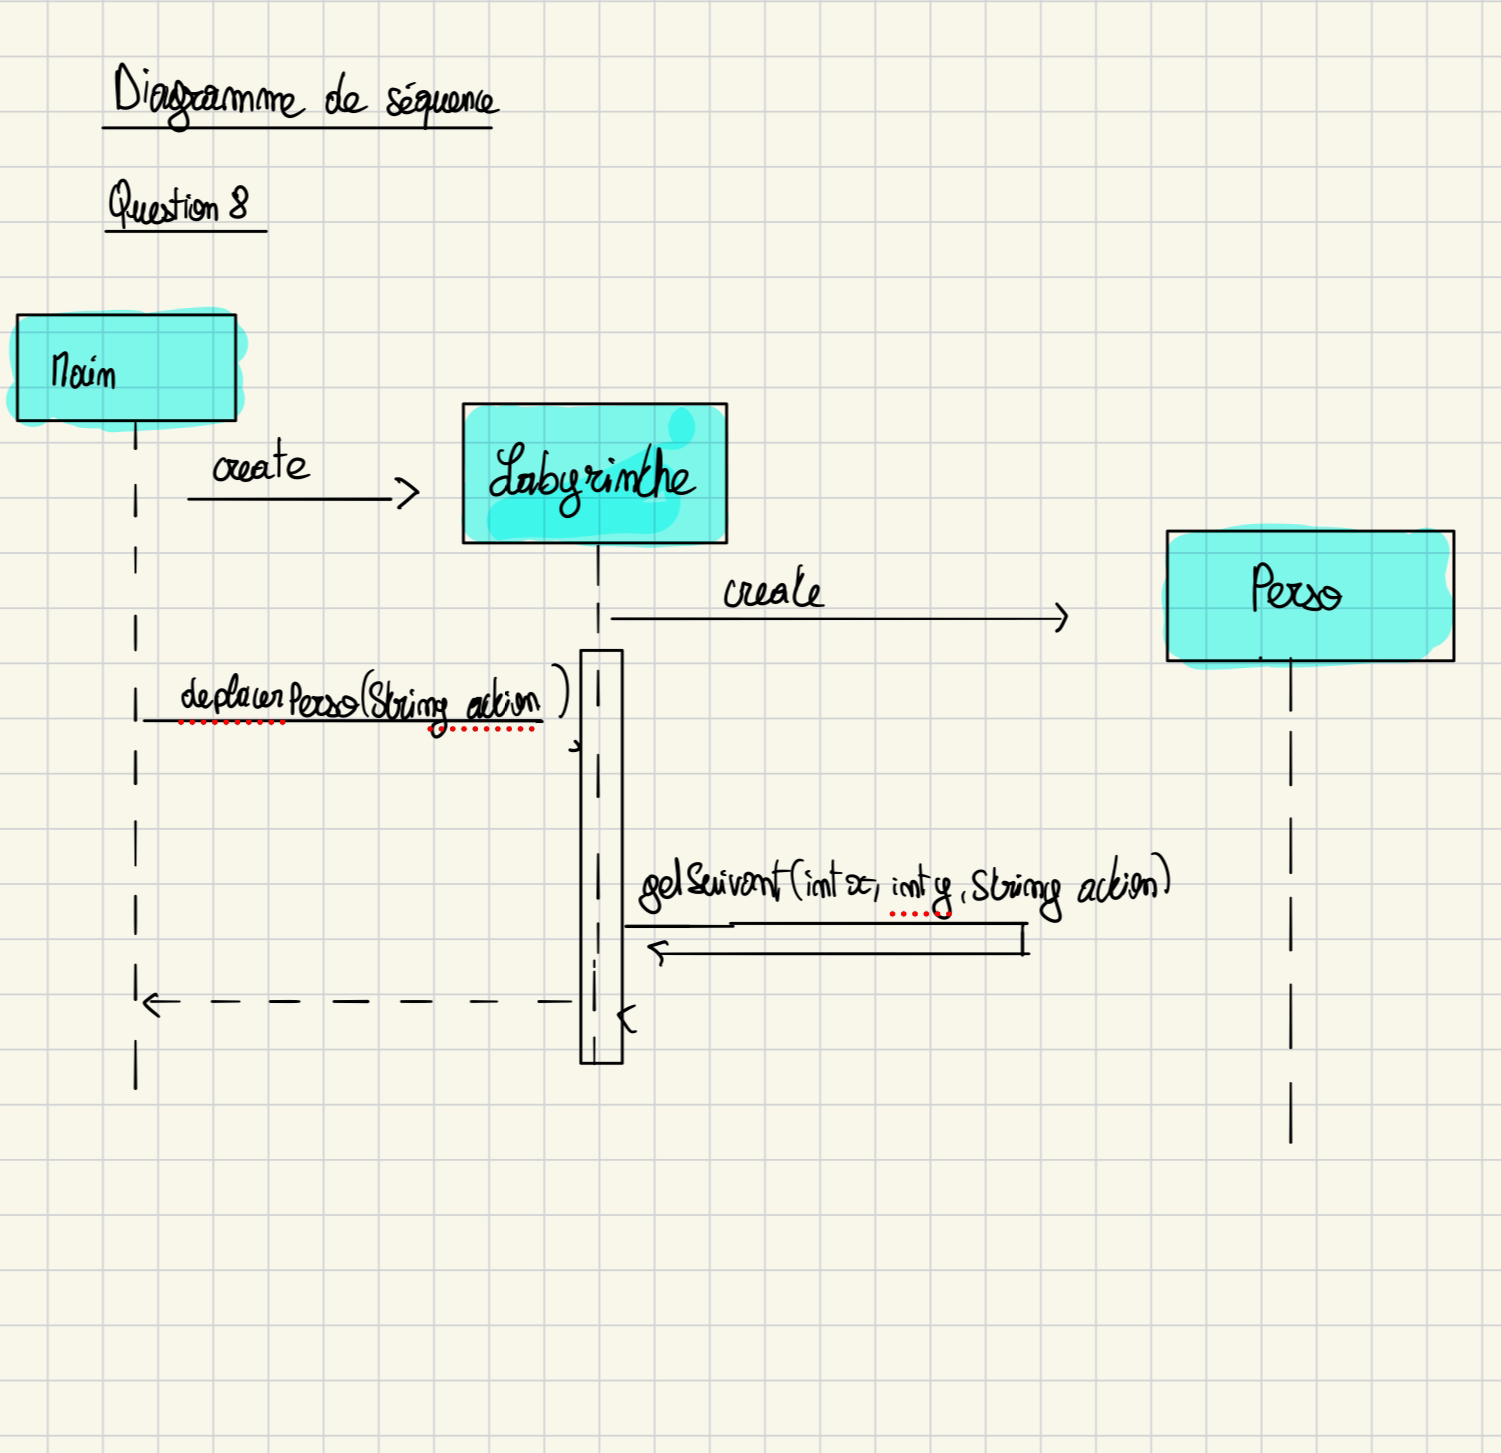 Diagramme de séquence
Question 8
Main
create
Labyrinthe
create
Perso
deplacerPerso(String action)
getSuivant(int x, int y, String action)